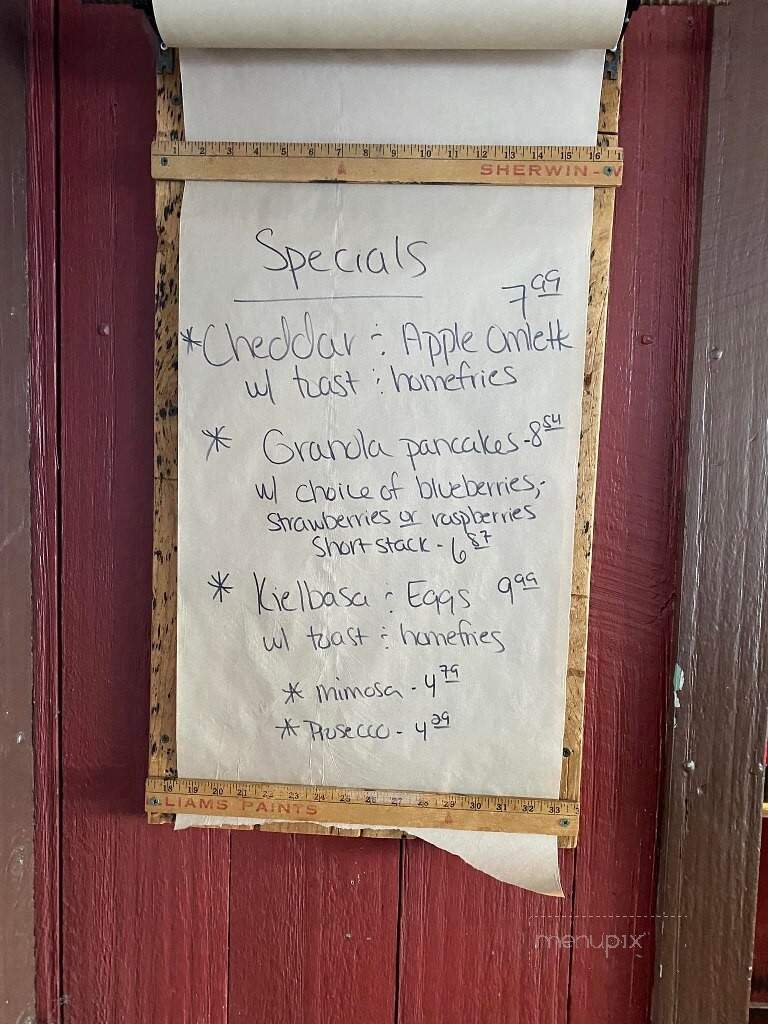 1 2 3 4 5 6 7 8 9 10 11 12 13 14 15 16 1
SHERWIN-W
Specials
7.99
*Cheddar & Apple Omlette
w/ toast & homefries
* Granola pancakes - 8.54
w/ choice of blueberries,
strawberries or raspberries
Short stack - 6.87
* Kielbasa & Eggs 9.99
w/ toast & homefries
* mimosa - 4.79
* Prosecco - 4.29
18 19 20 21 22 23 24 25 26 27 28 29 30 31 32 33
LIAMS PAINTS
menupix